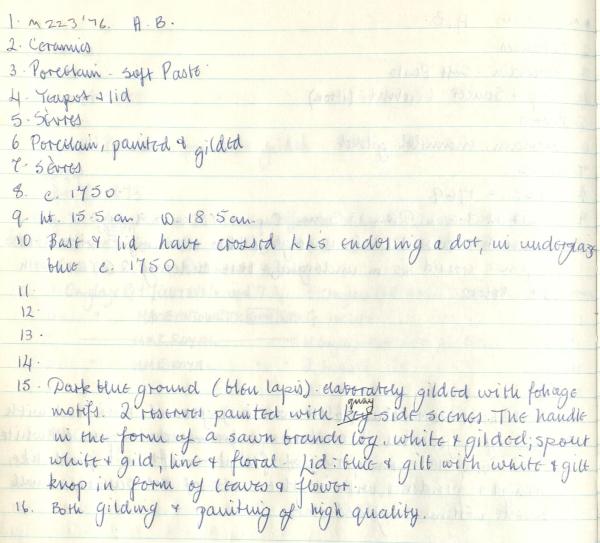 1. M223'76. A.B.
2. Ceramics
3. Porcelain - Soft Paste
4. Teapot & lid
5. Sèvres
6 Porcelain, painted & gilded
7. Sèvres
8. c. 1750
9. ht. 15.5 cm. W 18.5 cm.
10 Base & lid have crossed LLs enclosing a dot, in underglaze
blue c. 1750
11
12
13.
14.
15. Dark blue ground (bleu lapis). elaborately gilded with foliage
motifs. 2 reserves painted with quay side scenes. The handle
in the form of a sawn branch log. white & gilded; spout
white & gild, line & floral Lid: blue & gilt with white & gilt
knop in form of leaves & flower.
16. Both gilding & painting of high quality.